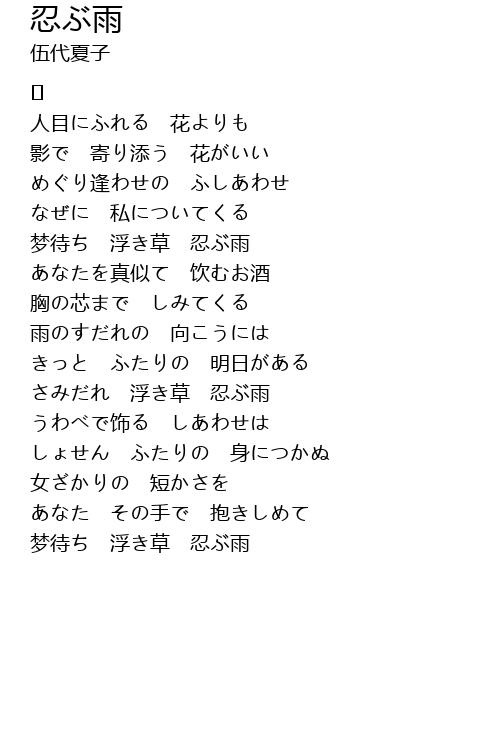 忍ぶ雨
伍代夏子
人目にふれる　花よりも
影で　寄り添う　花がいい
めぐり逢わせの　ふしあわせ
なぜに　私についてくる
梦待ち　浮き草　忍ぶ雨
あなたを真似て　饮むお酒
胸の芯まで　しみてくる
雨のすだれの　向こうには
きっと　ふたりの　明日がある
さみだれ　浮き草　忍ぶ雨
うわべで饰る　しあわせは
しょせん　ふたりの　身につかぬ
女ざかりの　短かさを
あなた　その手で　抱きしめて
梦待ち　浮き草　忍ぶ雨